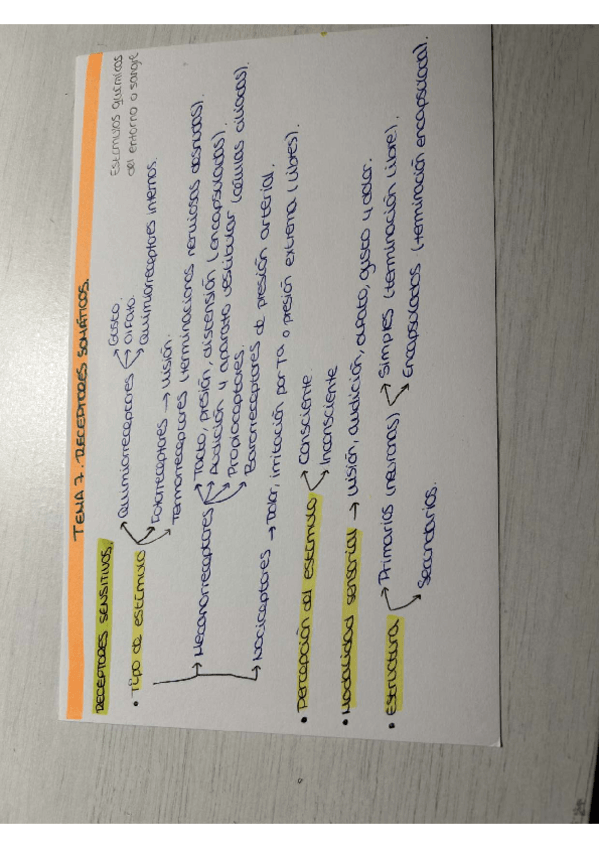 TEMA 7. RECEPTORES SOMÁTICOS.
RECEPTORES SENSITIVOS.
Estímulos químicos
del entorno o sangre
• Tipo de estímulo
Quimiorreceptores → Gusto.
→ Olfato.
→ Quimiorreceptores internos.
Fotorreceptores → Visión.
Termorreceptores (terminaciones nerviosas desnudas).
→ Mecanorreceptores → Tacto, presión, distensión (encapsulados).
→ Audición y aparato vestibular (células ciliadas).
→ Propioceptores.
→ Barorreceptores de presión arterial.
→ Nociceptores → Dolor, irritación por Ta o presión extrema (libres).
• Percepción del estímulo → Consciente.
→ Inconsciente
• Modalidad sensorial → Visión, audición, olfato, gusto y dolor.
• Estructura → Primarios (neuronas) → Simples (terminación libre).
→ Encapsulados (terminación encapsulada).
→ Secundarios.